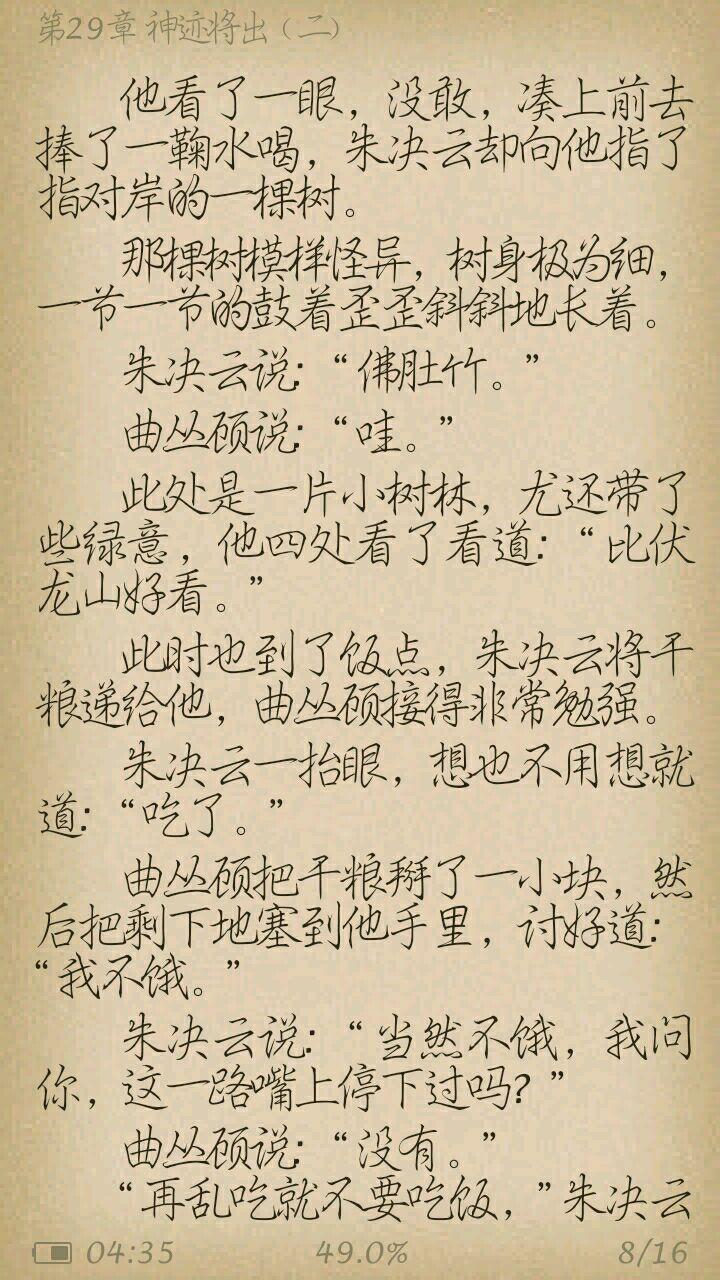 第29章 神迹将出（二）
他看了一眼，没敢，凑上前去
捧了一鞠水喝，朱决云却向他指了
指对岸的一棵树。
那棵树模样怪异，树身极为细，
一节一节的鼓着歪歪斜斜地长着。
朱决云说：“佛肚竹。”
曲丛顾说：“哇。”
此处是一片小树林，尤还带了
些绿意，他四处看了看道：“比伏
龙山好看。”
此时也到了饭点，朱决云将干
粮递给他，曲丛顾接得非常勉强。
朱决云一抬眼，想也不用想就
道：“吃了。”
曲丛顾把干粮掰了一小块，然
后把剩下地塞到他手里，讨好道：
“我不饿。”
朱决云说：“当然不饿，我问
你，这一路嘴上停下过吗？”
曲丛顾说：“没有。”
“再乱吃就不要吃饭，”朱决云
04:35 49.0% 8/16